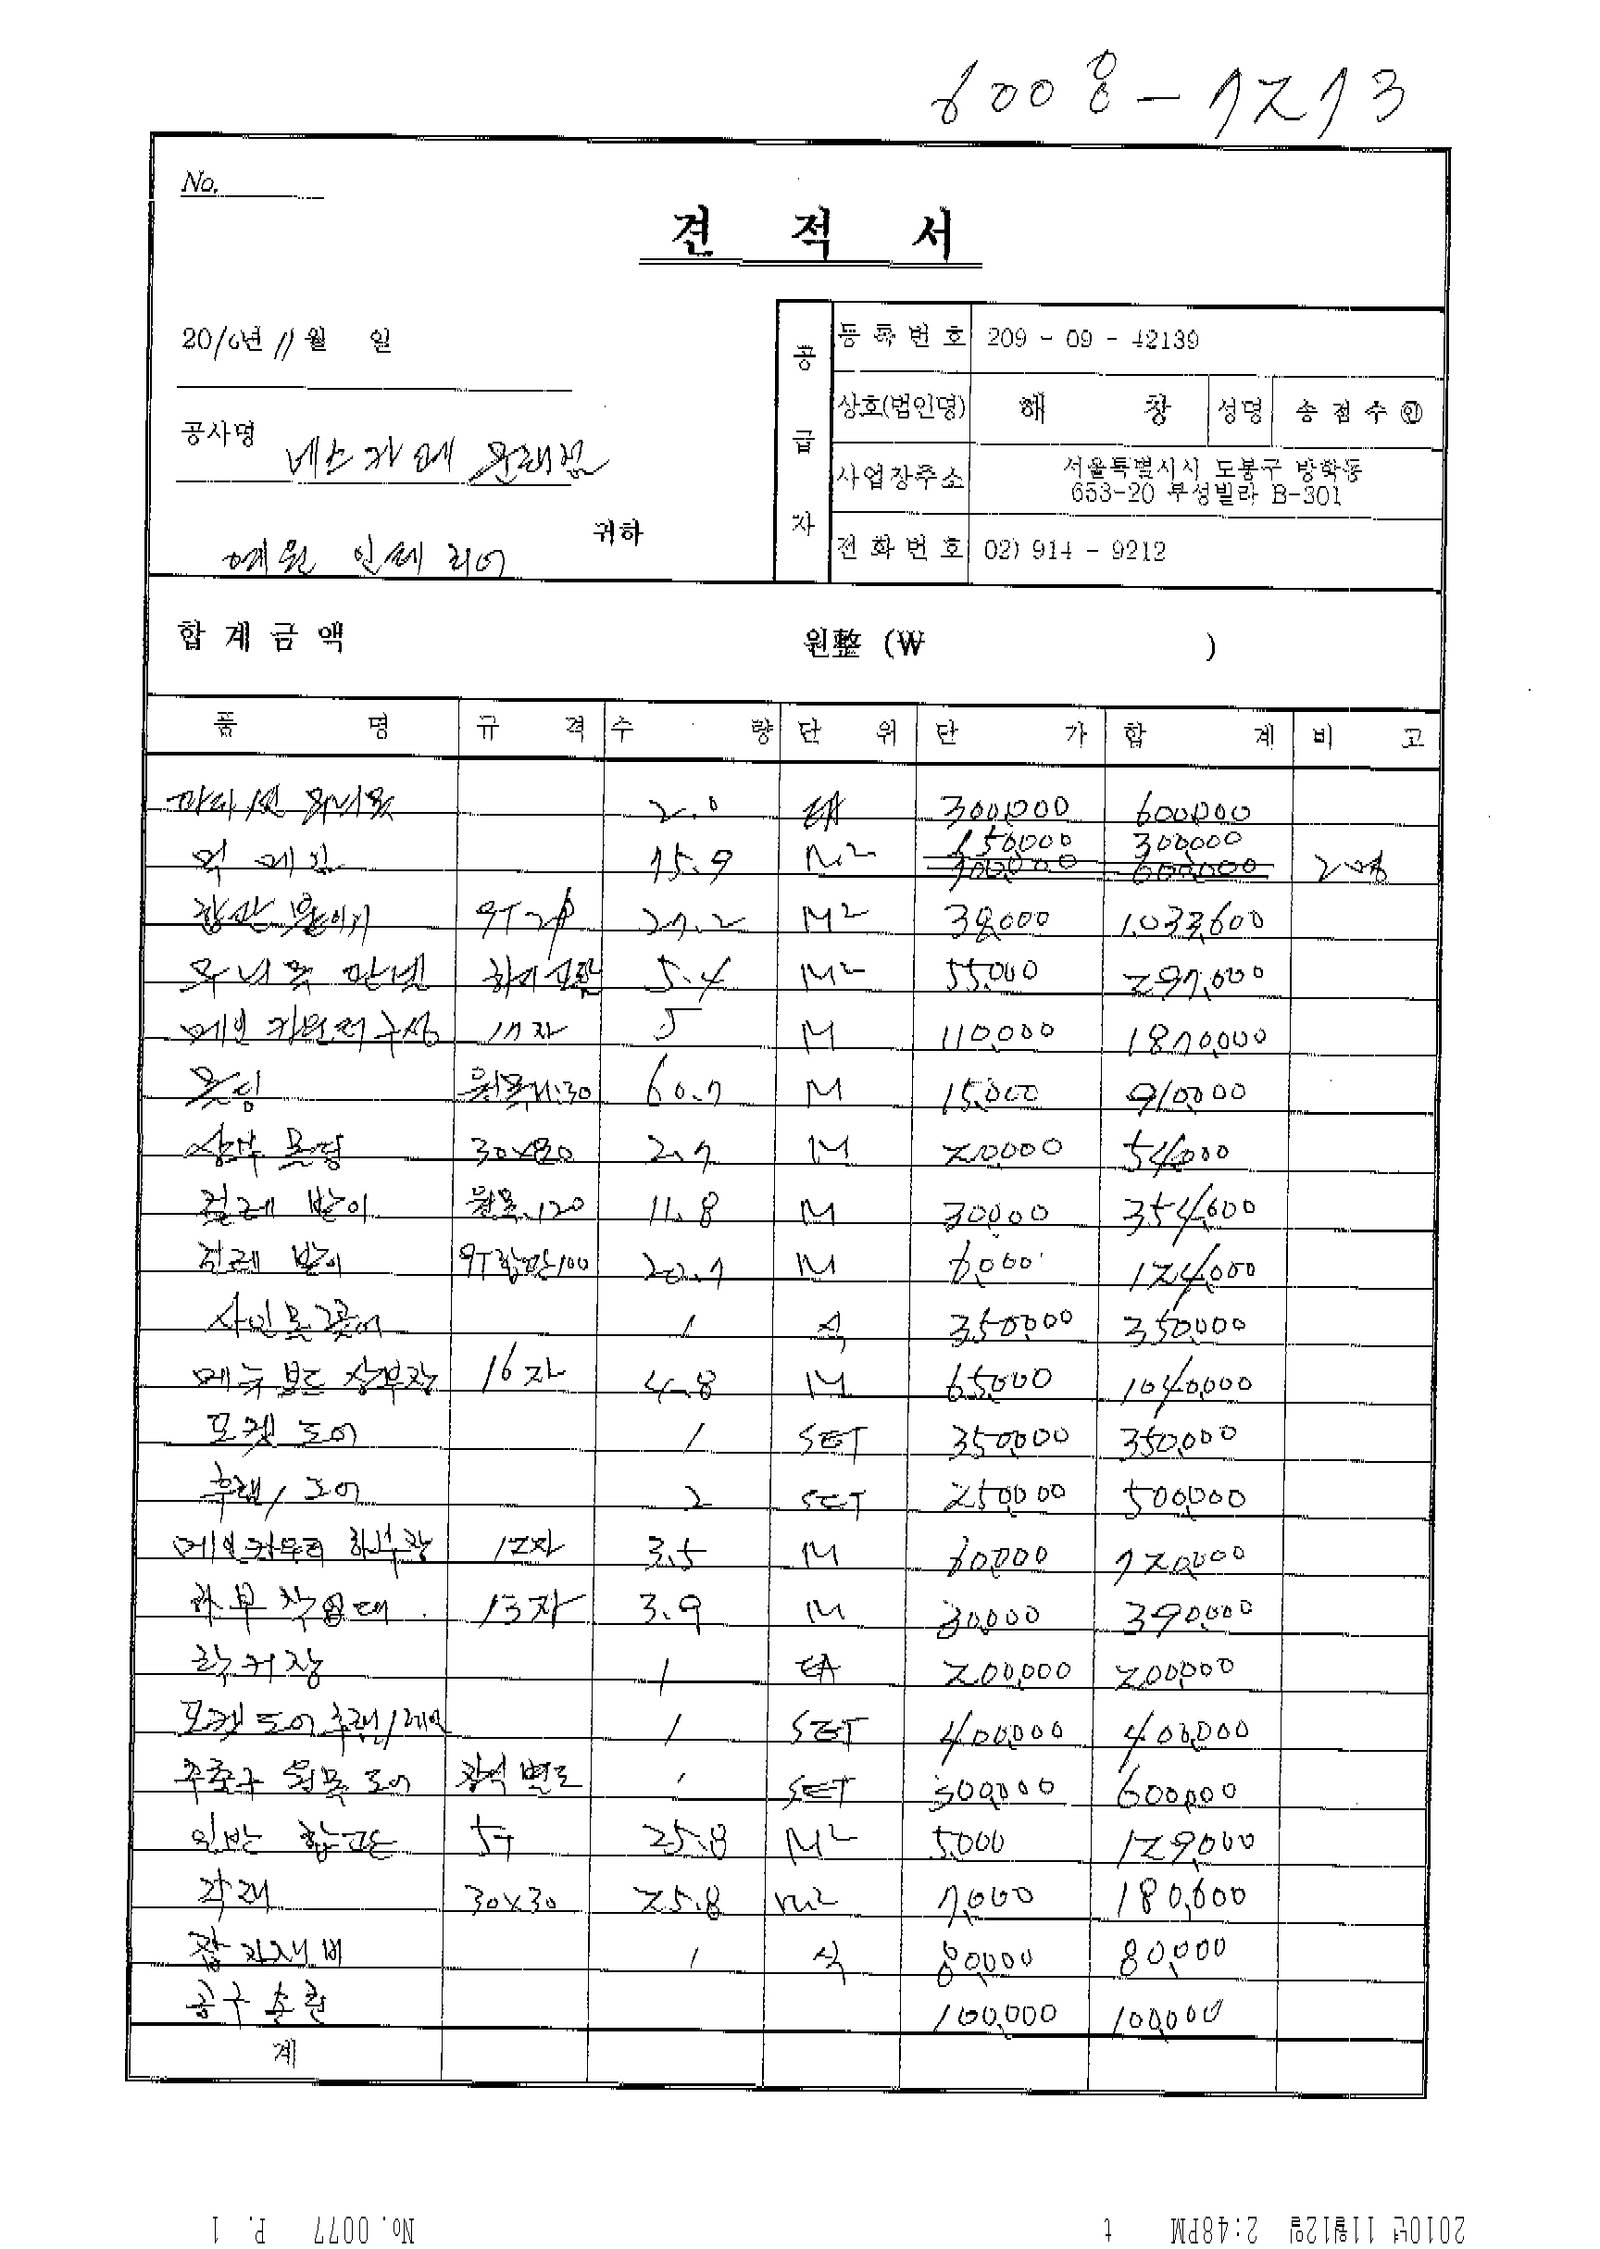 6008-1213
No.
견 적 서
2010년 11월 일
공사명 네스카페 문래점
예원 인테리어 귀하
공급자
등록번호 209 - 09 - 42139
상호(법인명) 해 창 성명 송점수 ㊞
사업장주소 서울특별시시 도봉구 방학동
653-20 부성빌라 B-301
전화번호 02) 914 - 9212
합계금액 원整 (₩ )
품 명 규 격 수 량 단 위 단 가 합 계 비 고
2.0 EA 300,000 600,000
150,000 300,000
15.9 M² 300,000 600,000 2명
9T 27.2 M² 38,000 1,033,600
5.4 M² 55,000 297,000
메인 카운터 구성 17자 5 M 110,000 1870,000
몰딩 60.7 M 15,000 910,000
상부 몰딩 30x80 2.7 M 20,000 54,000
걸레 받이 원목 120 11.8 M 30,000 354,600
걸레 받이 9T합판100 20.7 M 6,000 124,000
1 식 350,000 350,000
메뉴 보드 상부장 16자 4.8 M 65,000 1040,000
포켓 도어 1 SET 350,000 350,000
후렙/도어 2 SET 250,000 500,000
메인카운터 하부장 12자 3.5 M 60,000 720,000
하부 작업대 13자 3.9 M 30,000 390,000
1 EA 200,000 200,000
포켓 도어 후렘/레일 1 SET 400,000 400,000
주출구 원목 도어 장석 별도 1 SET 300,000 600,000
일반 합판 5T 25.8 M² 5,000 129,000
각재 30x30 25.8 M² 7,000 180,600
잡자재비 1 식 80,000 80,000
공구손료 100,000 100,000
계
2010년 11월12일 2:48PM t No.0077 P. 1